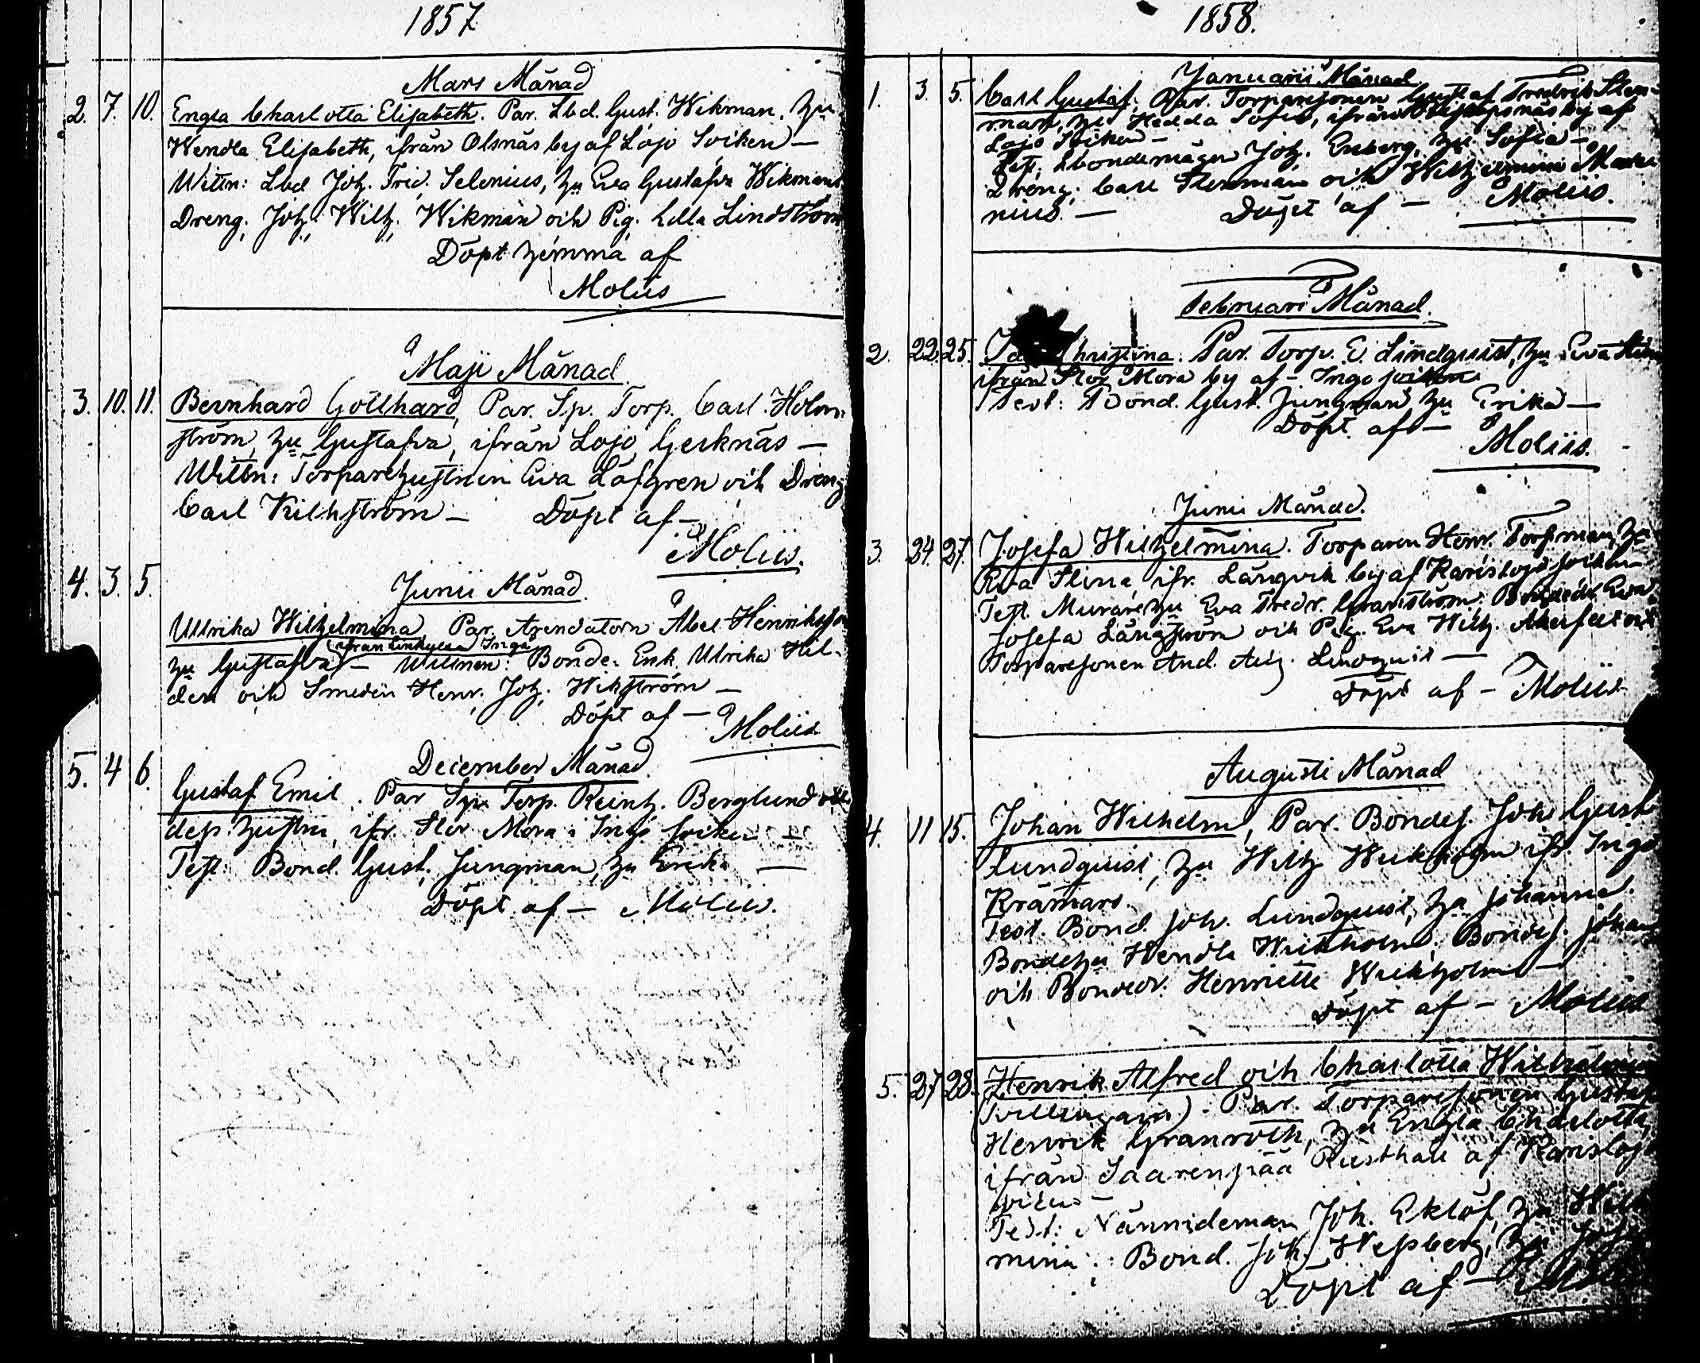 1857
Mars Månad
2. 7. 10. Engla Charlotta Elisabeth. Par. Lbd. Gust. Wikman, Hu
Wendla Elisabeth, ifrån Olsnäs by af Lojo Socken —
Wittn: Lbd Joh. Frid. Selenius, Hu Eva Gustafva Wikman
Dreng. Joh. Wilh. Wikman och Pig. Lilla Lindström
Döpt hemma af
Moliis
Maji Månad
3. 10. 11. Bernhard Gotthard, Par. Sp. Torp. Carl Holm-
ström, Hu Gustafva, ifrån Lojo Gerknäs —
Wittn: Torparehustrun Eva Löfgren och Dreng
Carl — Döpt af —
Moliis.
4. 3. 5. Junii Månad
Ullrika Wilhelmina Par. Arendatorn Abel Henriksson
ifrån Inga
Hu Gustafva — Wittnen: Bonde. Enk. Ulrika Hel-
den och Smeden Henr. Joh. Wikström —
Döpt af — Moliis
December Månad
5. 4 6. Gustaf Emil. Par Sp. Torp. Reinh. Berglund och
dess hustru, ifr. Stor Mora i Ingo Socken —
Test: Bond. Gust. Jungman, Hu Erika —
Döpt af — Moliis.
1858.
Januarii Månad
1. 3. 5. Carl Gustaf. Par. Torparesonen Gustaf Fredrik Sten-
man, Hu Hedda Sofia, ifrån by af
Lojo Socken —
Test. Joh. Enberg, Hu Sofia —
Dreng. Carl Stenman och Wilhelmina
nius. — Döpt af — Moliis.
Februari Månad.
2. 22. 25. Christina. Par. Torp. E. Lindquist, Hu Eva Stina
ifrån Stor Mora by af Ingo socken
Test: Bond. Gust. Jungman Hu Erika —
Döpt af — Moliis.
Junii Månad.
3. 24. 27. Josefa Wilhelmina. Torparen Henr. Torpman, Hu
Eva Stina, ifr. Långvik by af Karislojo socken
Test. Murare Hu Eva Fredr. Granström. Bondedr. Eva
Josefa Långström och Pig. Eva Wilh. och
Torparesonen And. Aug. Lindquist —
Döpt af — Moliis
Augusti Månad
4. 11 15. Johan Wilhelm, Par. Bondes. Joh. Gust
Lundquist, Hu Wilh. Wickholm ifr. Ingo
Krämars.
Test. Bond. Joh. Lundquist, Hu Johanna.
Bondehu Wendla Wickholm, Bondes. Johan
och Bondedr. Henriette Wickholm —
Döpt af — Moliis
5. 27. 28. Henrik Alfred och Charlotta Wilhelmina
(Tvillingar). Par. Torparesonen Gustaf
Henrik Granroth, Hu Engla Charlotta,
ifrån Saarenpää Rusthall af Karislojo
socken —
Test: Nämndeman Joh. Eklöf, Hu Wilh
mina: Bond. Joh. Wessberg, Hu
Döpt af —